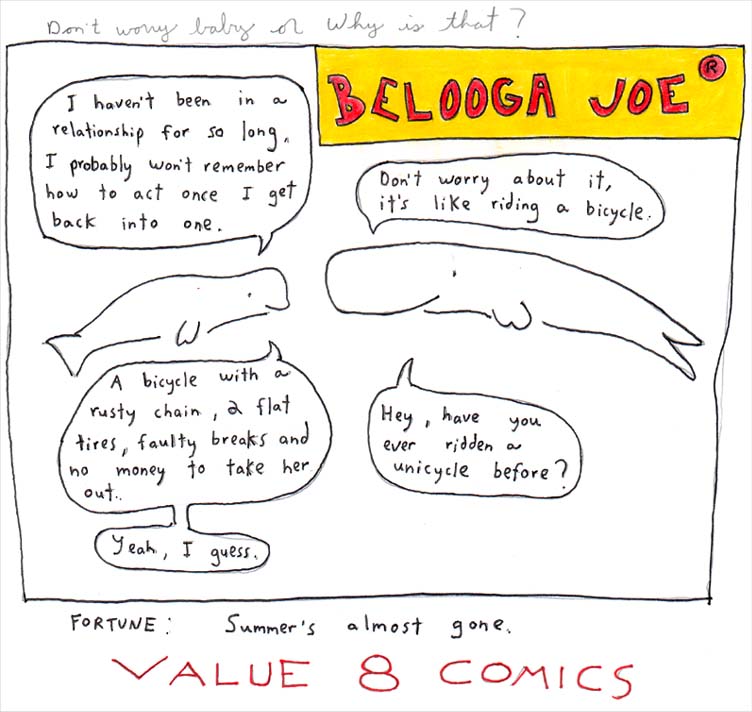 Don't worry baby or Why is that?
BELOOGA JOE ®
I haven't been in a
relationship for so long.
I probably won't remember
how to act once I get
back into one.
Don't worry about it,
it's like riding a bicycle.
A bicycle with a
rusty chain, 2 flat
tires, faulty breaks and
no money to take her
out..
Yeah, I guess.
Hey, have you
ever ridden a
unicycle before?
FORTUNE: Summer's almost gone.
VALUE 8 COMICS